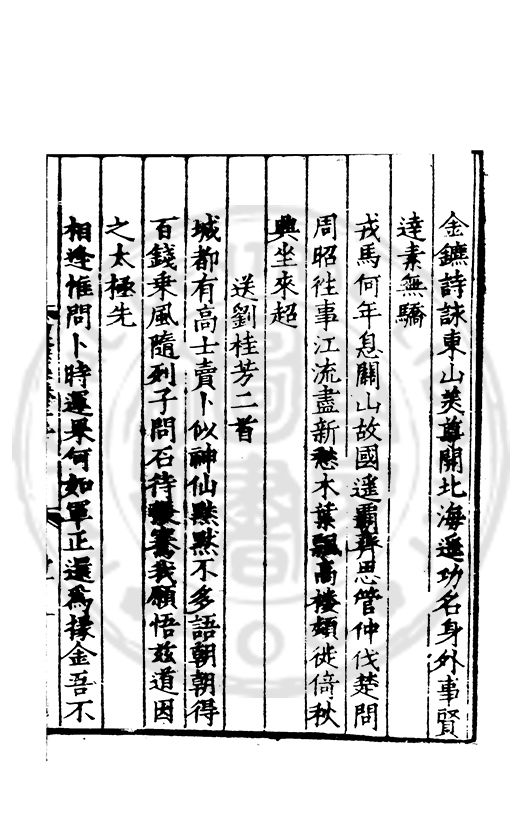 金鑣詩詠東山美尊開北海遥功名身外事賢
達素無驕
戎馬何年息關山故國遥霸齊思管仲伐楚問
周昭徃事江流盡新愁木葉飄高樓頻徙倚秋
興坐來超
送劉桂芳二首
城都有高士賣卜似神仙黙黙不多語朝朝得
百錢乗風隨列子問石待騫我願悟兹道因
之太極先
相逢惟問卜時運果何如軍正還爲掾金吾不